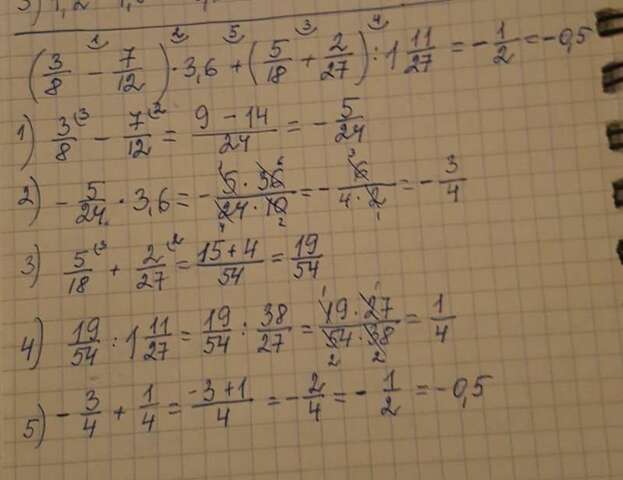 (3/8 - 7/12) · 3,6 + (5/18 + 2/27) : 1 11/27 = -1/2 = -0,5
1) 3/8 - 7/12 = (9 - 14)/24 = -5/24
2) -5/24 · 3,6 = -(5 · 36)/(24 · 10) = -6/(4 · 2) = -3/4
3) 5/18 + 2/27 = (15 + 4)/54 = 19/54
4) 19/54 : 1 11/27 = 19/54 : 38/27 = (19 · 27)/(54 · 38) = 1/4
5) -3/4 + 1/4 = (-3 + 1)/4 = -2/4 = -1/2 = -0,5